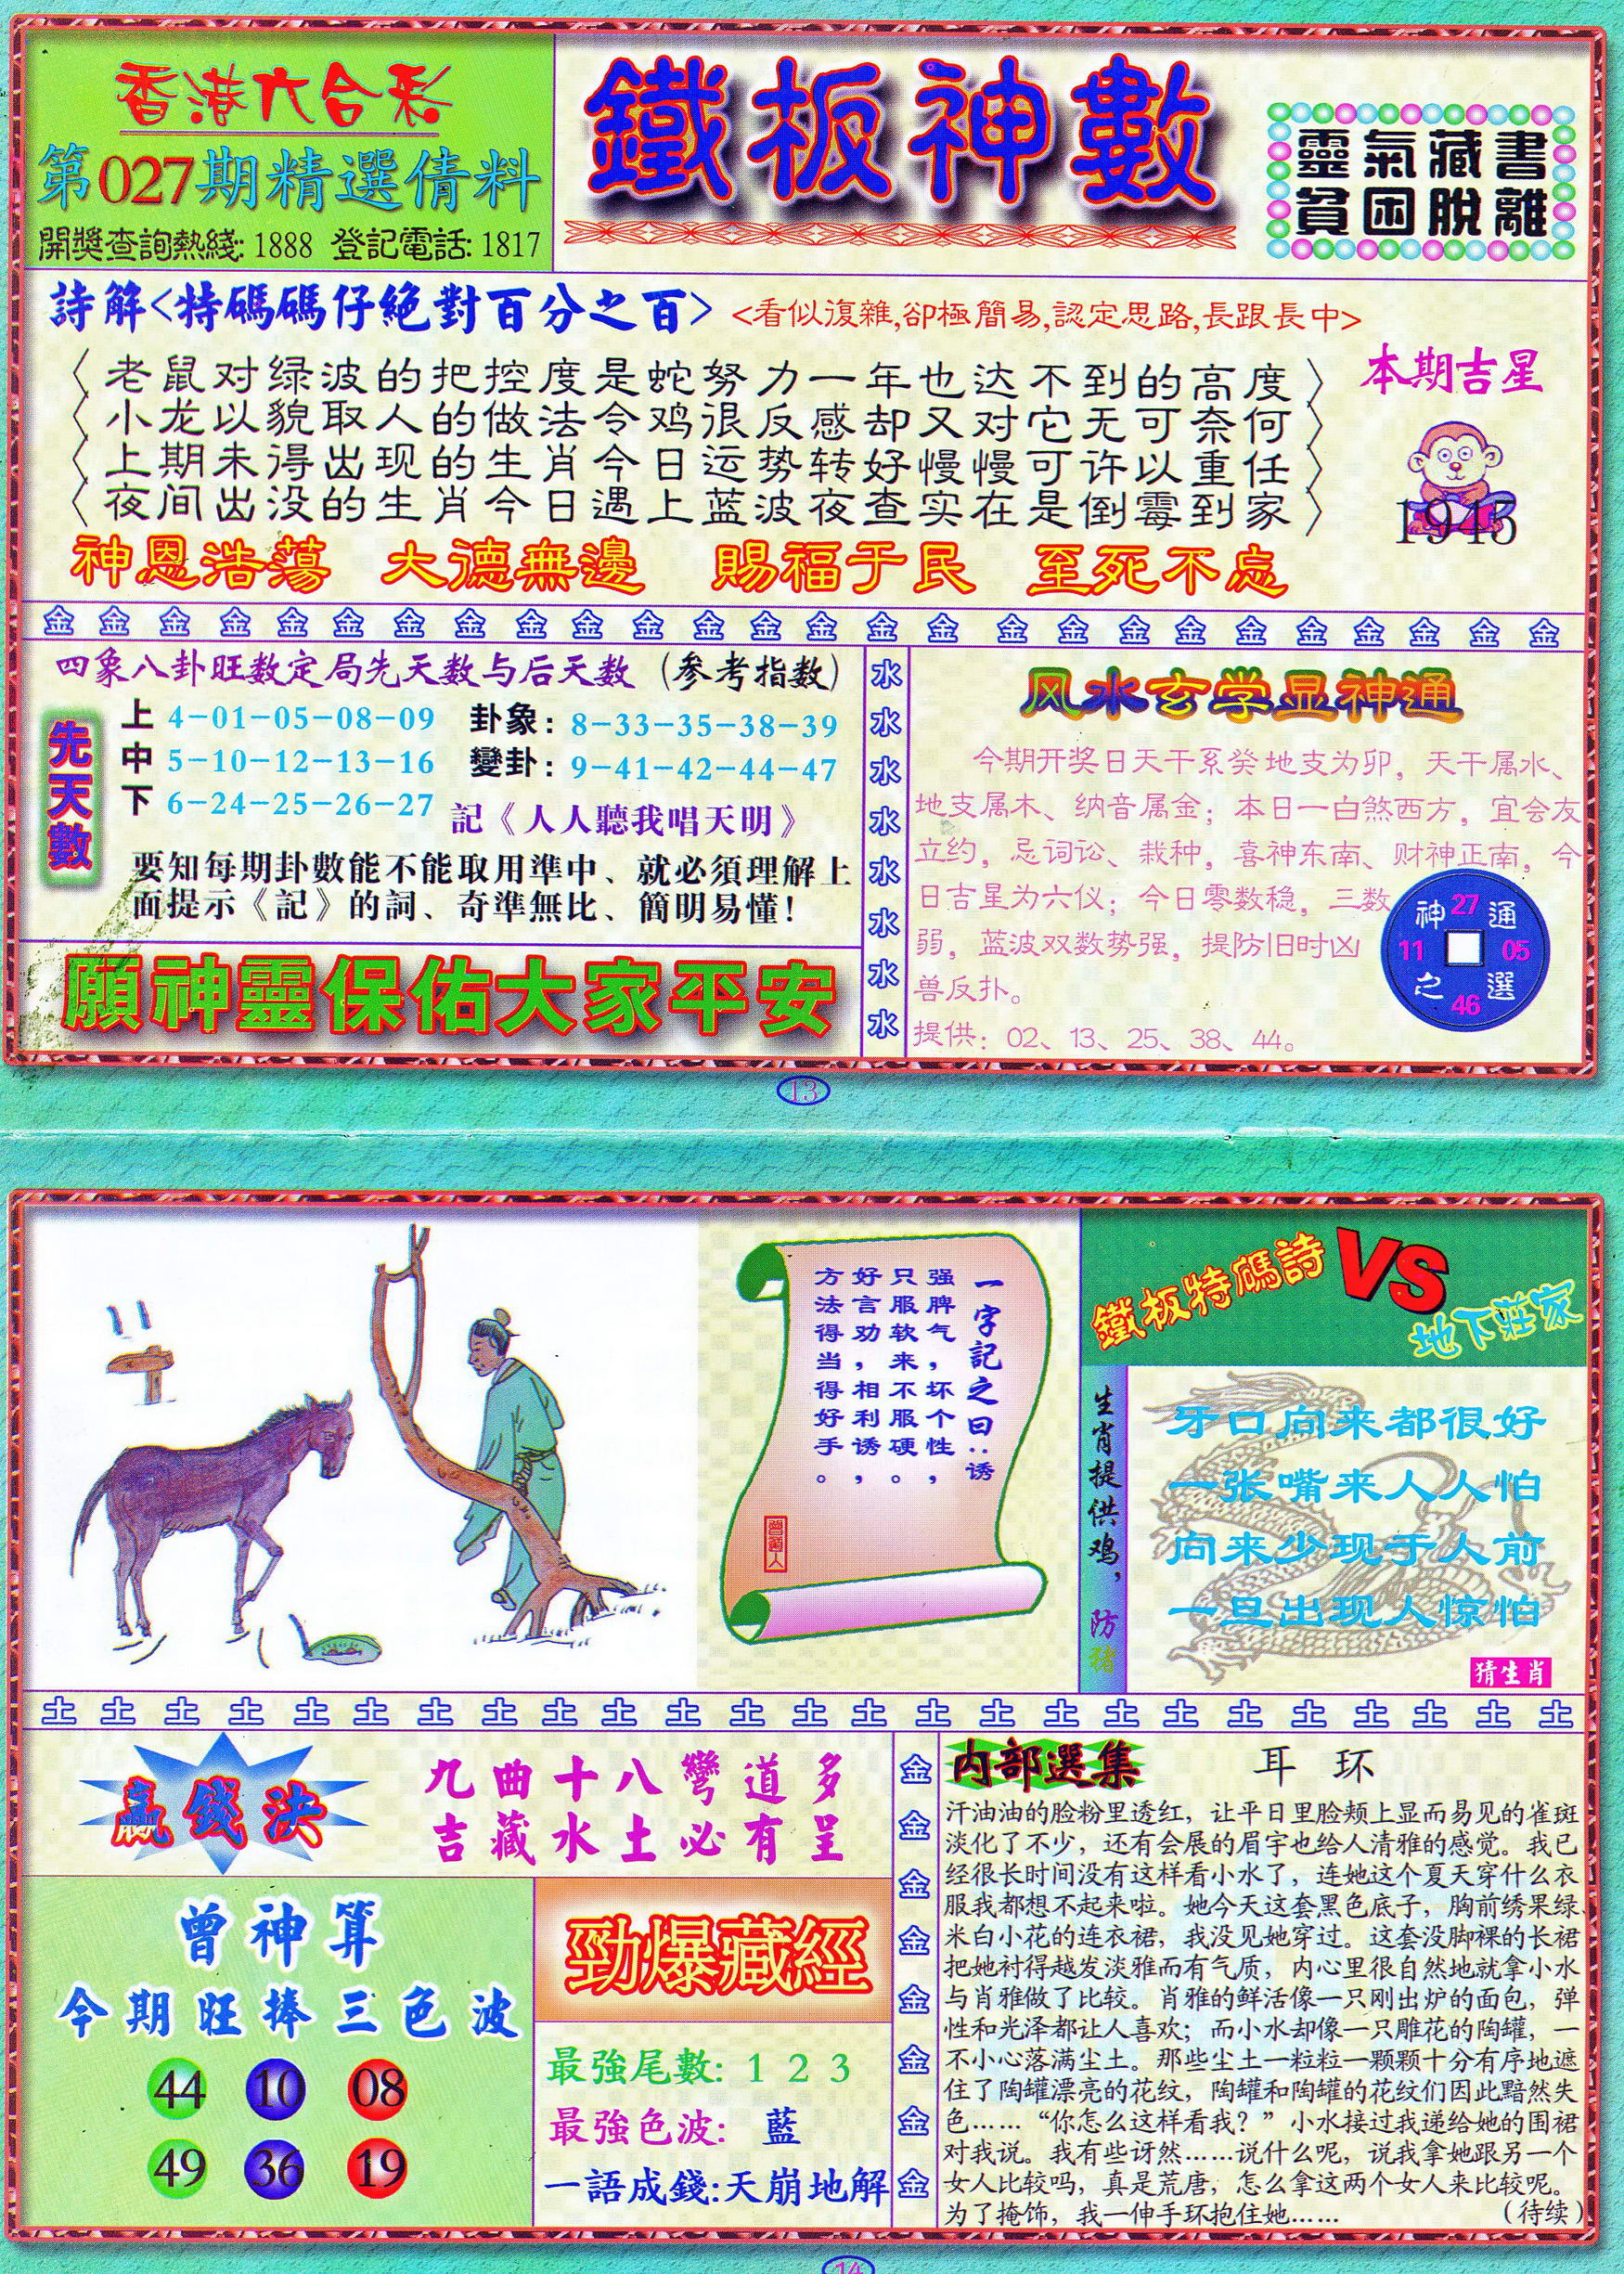 香港六合彩
第027期精選倩料
開獎查詢熱綫:1888 登記電話:1817
鐵板神數
靈氣藏書
貧困脫離
詩解<特碼碼仔絕對百分之百>
<看似復雜,卻極簡易,認定思路,長跟長中>
老鼠对绿波的把控度是蛇努力一年也达不到的高度
小龙以貌取人的做法令鸡很反感却又对它无可奈何
上期未得出现的生肖今日运势转好慢慢可许以重任
夜间出没的生肖今日遇上蓝波夜查实在是倒霉到家
本期吉星
1945
神恩浩蕩 大德無邊 賜福于民 至死不忘
金 金 金 金 金 金 金 金 金 金 金 金 金 金 金 金 金 金 金 金 金 金 金 金 金 金
四象八卦旺数定局先天数与后天数(参考指数)
先天數
上 4-01-05-08-09 卦象:8-33-35-38-39
中 5-10-12-13-16 變卦:9-41-42-44-47
下 6-24-25-26-27 記《人人聽我唱天明》
要知每期卦數能不能取用準中、就必須理解上
面提示《記》的詞、奇準無比、簡明易懂!
願神靈保佑大家平安
水
水
水
水
水
水
水
水
风水玄学显神通
今期开奖日天干系癸地支为卯，天干属水、
地支属木、纳音属金；本日一白煞西方，宜会友
立约，忌词讼、栽种，喜神东南、财神正南，今
日吉星为六仪；今日零数稳，三数
弱，蓝波双数势强，提防旧时凶
兽反扑。
提供：02、13、25、38、44。
神 27 通
11 05
之 46 選
13
一字記之曰:诱
强脾气，坏个性，
只服软来不服硬。
好言劝，相利诱，
方法得当得好手。
鐵板特碼詩
VS
地下莊家
生肖提供鸡，防猪
牙口向来都很好
一张嘴来人人怕
向来少现于人前
一旦出现人惊怕
猜生肖
土 土 土 土 土 土 土 土 土 土 土 土 土 土 土 土 土 土 土 土 土 土 土 土 土
贏錢決
九曲十八彎道多
吉藏水土必有呈
曾神算
今期旺捧三色波
44 10 08
49 36 19
勁爆藏經
最強尾數: 1 2 3
最強色波: 藍
一語成錢:天崩地解
金
金
金
金
金
金
金
金
內部選集
耳环
汗油油的脸粉里透红，让平日里脸颊上显而易见的雀斑
淡化了不少，还有会展的眉宇也给人清雅的感觉。我已
经很长时间没有这样看小水了，连她这个夏天穿什么衣
服我都想不起来啦。她今天这套黑色底子，胸前绣果绿、
米白小花的连衣裙，我没见她穿过。这套没脚裸的长裙
把她衬得越发淡雅而有气质，内心里很自然地就拿小水
与肖雅做了比较。肖雅的鲜活像一只刚出炉的面包，弹
性和光泽都让人喜欢；而小水却像一只雕花的陶罐，一
不小心落满尘土。那些尘土一粒粒一颗颗十分有序地遮
住了陶罐漂亮的花纹，陶罐和陶罐的花纹们因此黯然失
色……“你怎么这样看我？”小水接过我递给她的围裙
对我说。我有些讶然……说什么呢，说我拿她跟另一个
女人比较吗，真是荒唐，怎么拿这两个女人来比较呢。
为了掩饰，我一伸手环抱住她…… （待续）
14